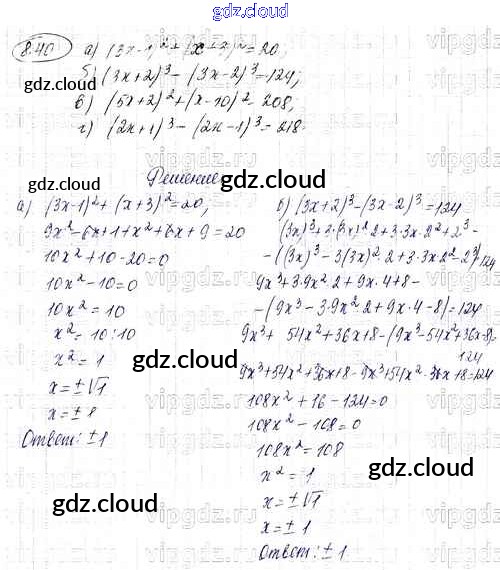 gdz.cloud
8.40 а) (3x-1)²+(x+3)²=20;
б) (3x+2)³-(3x-2)³=124;
в) (5x+2)²+(x-10)²=208;
г) (2x+1)³-(2x-1)³=218.
Решение
а) (3x-1)²+(x+3)²=20;
9x²-6x+1+x²+6x+9=20
10x²+10-20=0
10x²-10=0
10x²=10
x²=10:10
x²=1
x=±√1
x=±1
Ответ: ±1
б) (3x+2)³-(3x-2)³=124
(3x)³+3·(3x)²·2+3·3x·2²+2³-
-((3x)³-3(3x)²·2+3·3x·2²-2³)=124
9x³+3·9x²·2+9x·4+8-
-(9x³-3·9x²·2+9x·4-8)=124
9x³+54x²+36x+8-(9x³-54x²+36x-8)=
124
9x³+54x²+36x+8-9x³+54x²-36x+8=124
108x²+16-124=0
108x²-108=0
108x²=108
x²=1
x=±√1
x=±1
Ответ: ±1
gdz.cloud
gdz.cloud
gdz.cloud
gdz.cloud
gdz.cloud
gdz.cloud
gdz.cloud